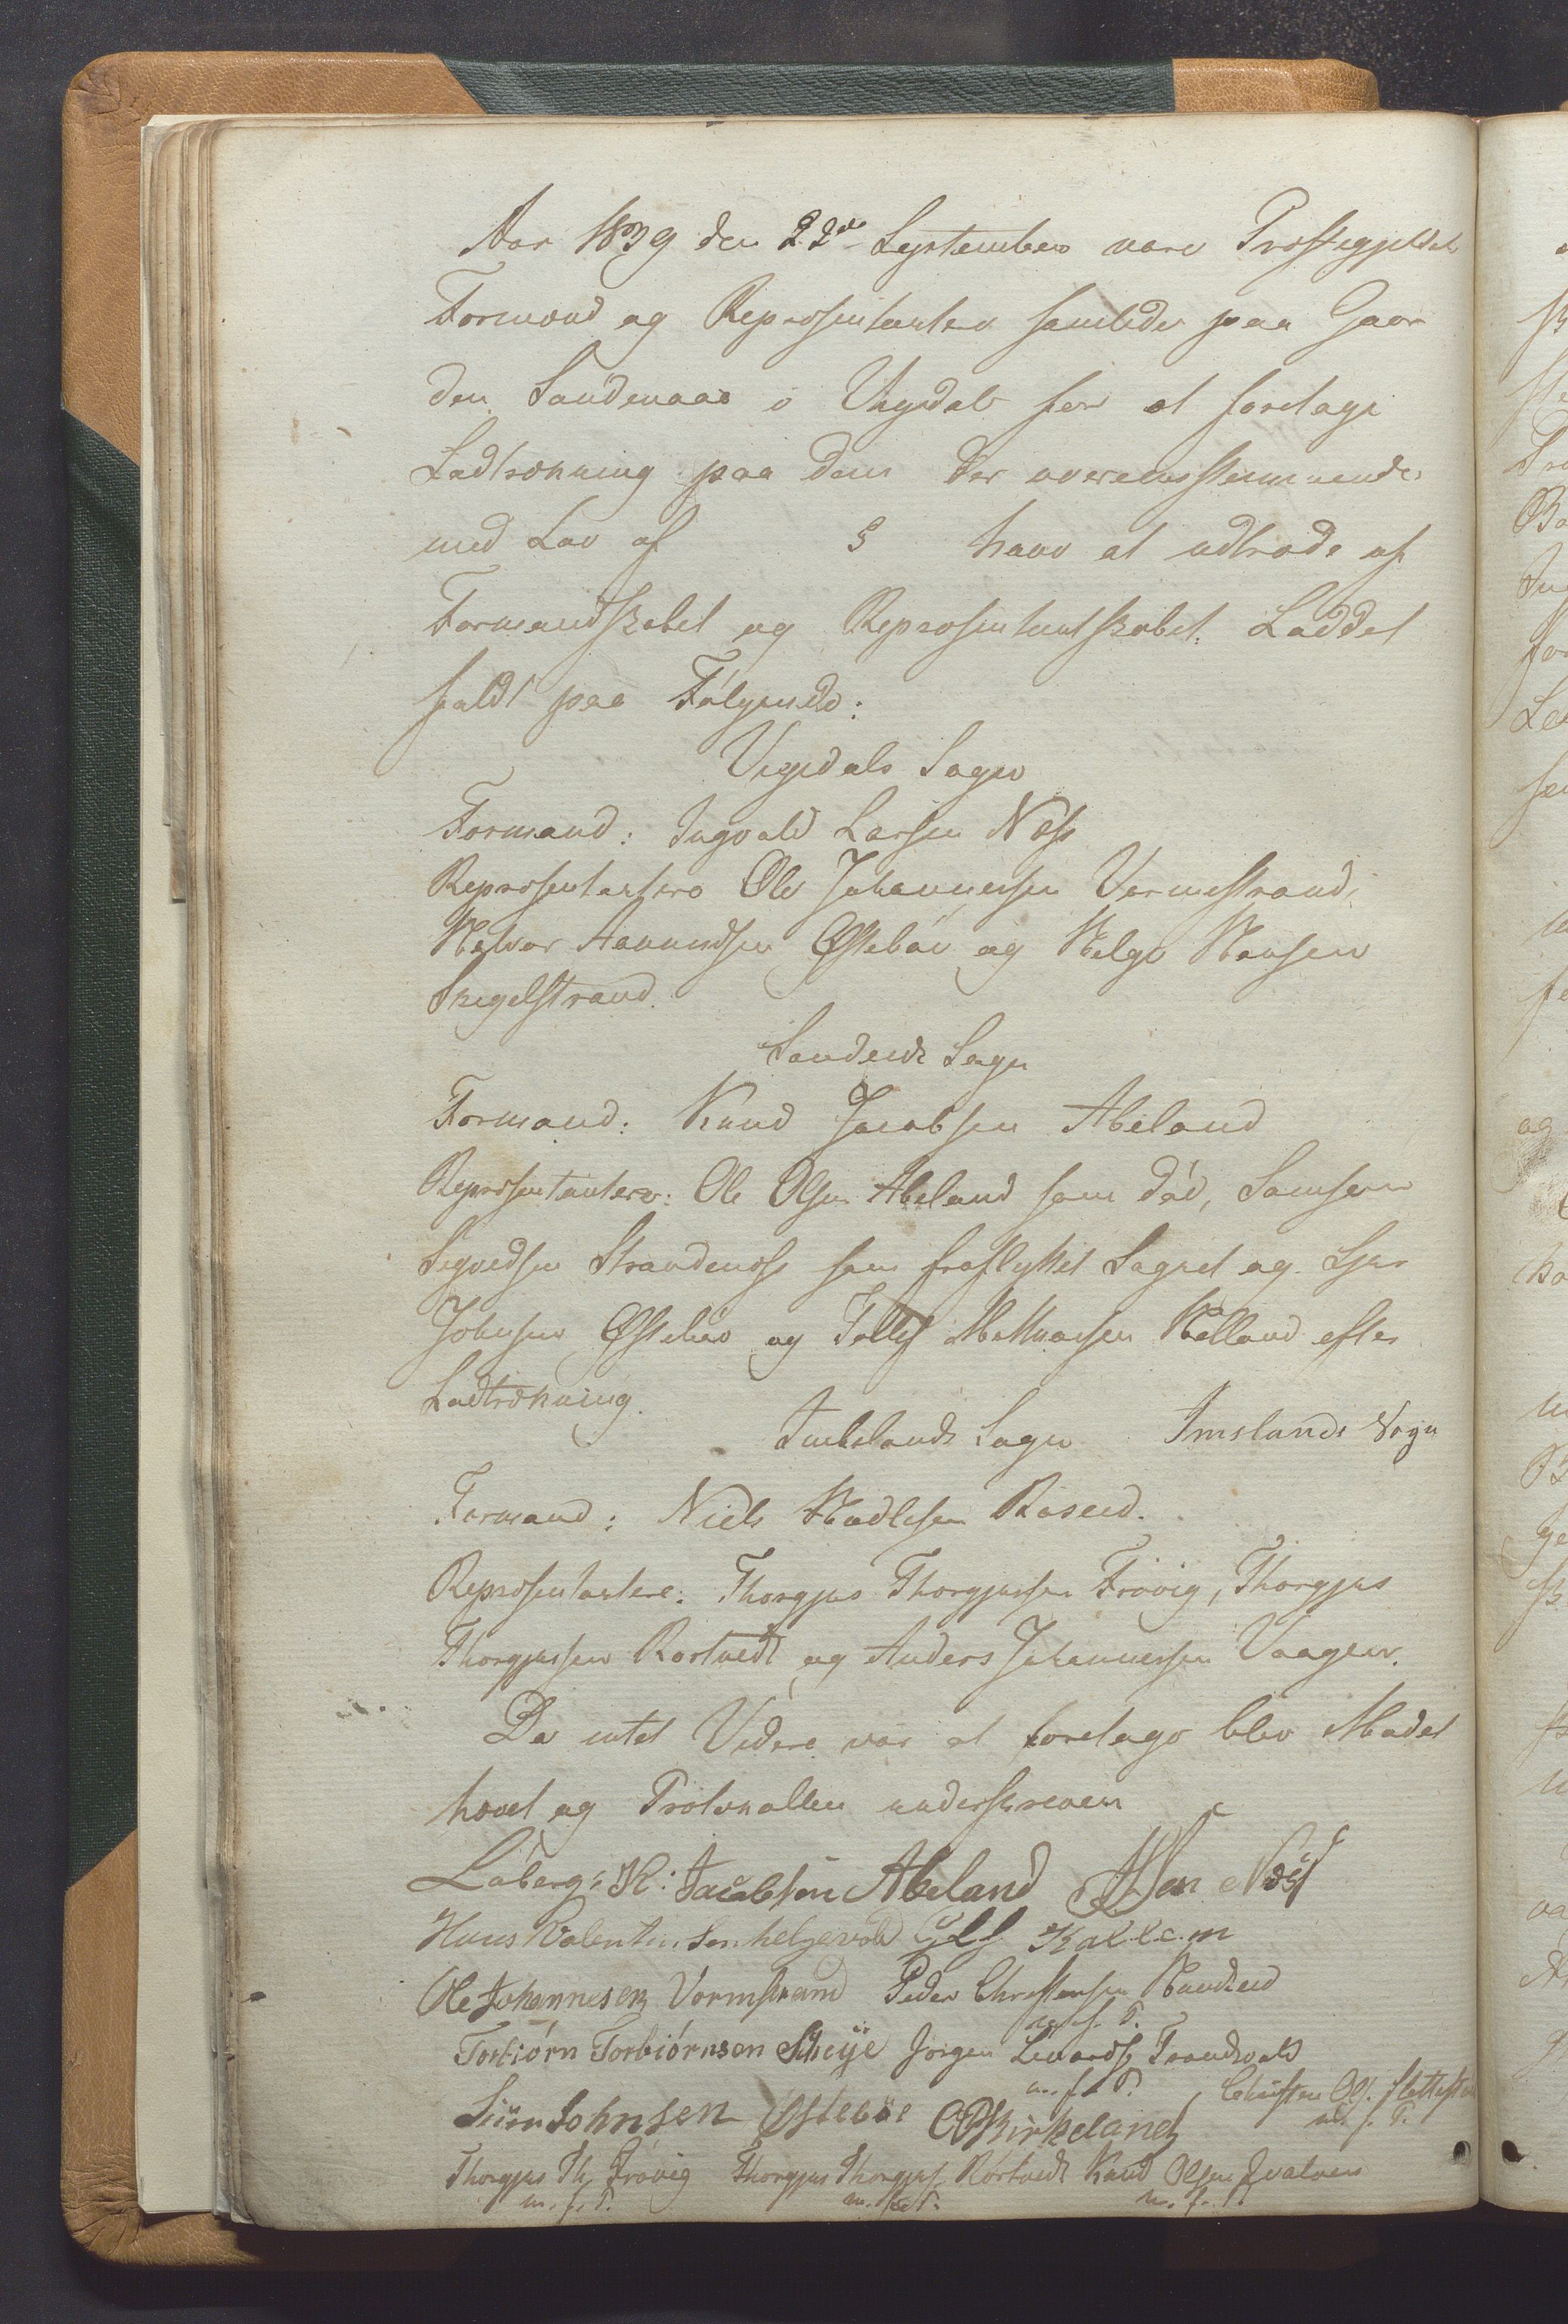 Aar 1839 den 22de September vare Præstegjeldet
Formænd og Repræsentanter samlede paa Gaar
den Sandenaas i Vigedal for at foretage
Lodtrækning paa dem der overensstemmende
med Lov af § have at udtræde af
Formandskabet og Repræsentantskabet. Loddet
faldt paa Følgende:
Vigedals Sogn
Formand: Ingvald Larsen Næss
Repræsentanter Ole Johannessen Vormestrand,
Halvor Aamundsen Østebøe og Helge Hansen
Skegelstrand.
Sandeids Sogn
Formand: Knud Jacobsen Abeland
Repræsentanter: Ole Olsen Abeland som død, Samson
Sigvedsen Strandenæss som fraflyttet Sognet og Sjur
Johnsen Østebøe og Tollef Helland efter
Lodtrækning.
Imslands Sogn Imslands Sogn
Formand: Niels Hadlesen Røseid.
Repræsentantere: Thorgjus Thorgjussen Frøvig, Thorgjus
Thorgjussen Rørtvedt og Anders Johannessen Vaagen.
Da intet Videre var at foretage blev Mødet
hævet og Protokollen underskreven
Løberg. K: Jacobsen Abeland Næss
Hans Valentinsen helgevold Kallem
Ole Johannesen Vormstrand Peder Christensen Handeid
m. f. P.
Torbiörn Torbiörnsen Scheije Jörgen Levardss Trondsvold
m. f. P. Christen Ols.
Siur Johnsen Østeböe Birkeland m. f. P.
Thorgjus Th. Frøvig Thorgjus Thorgjuss. Rørtvedt Knud Olsen
m. f. P. m. f. P. m. f. P.